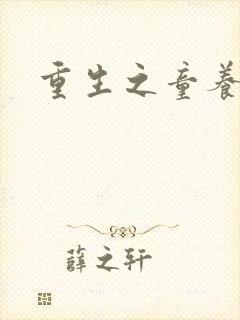 重生之童養
薛之轩